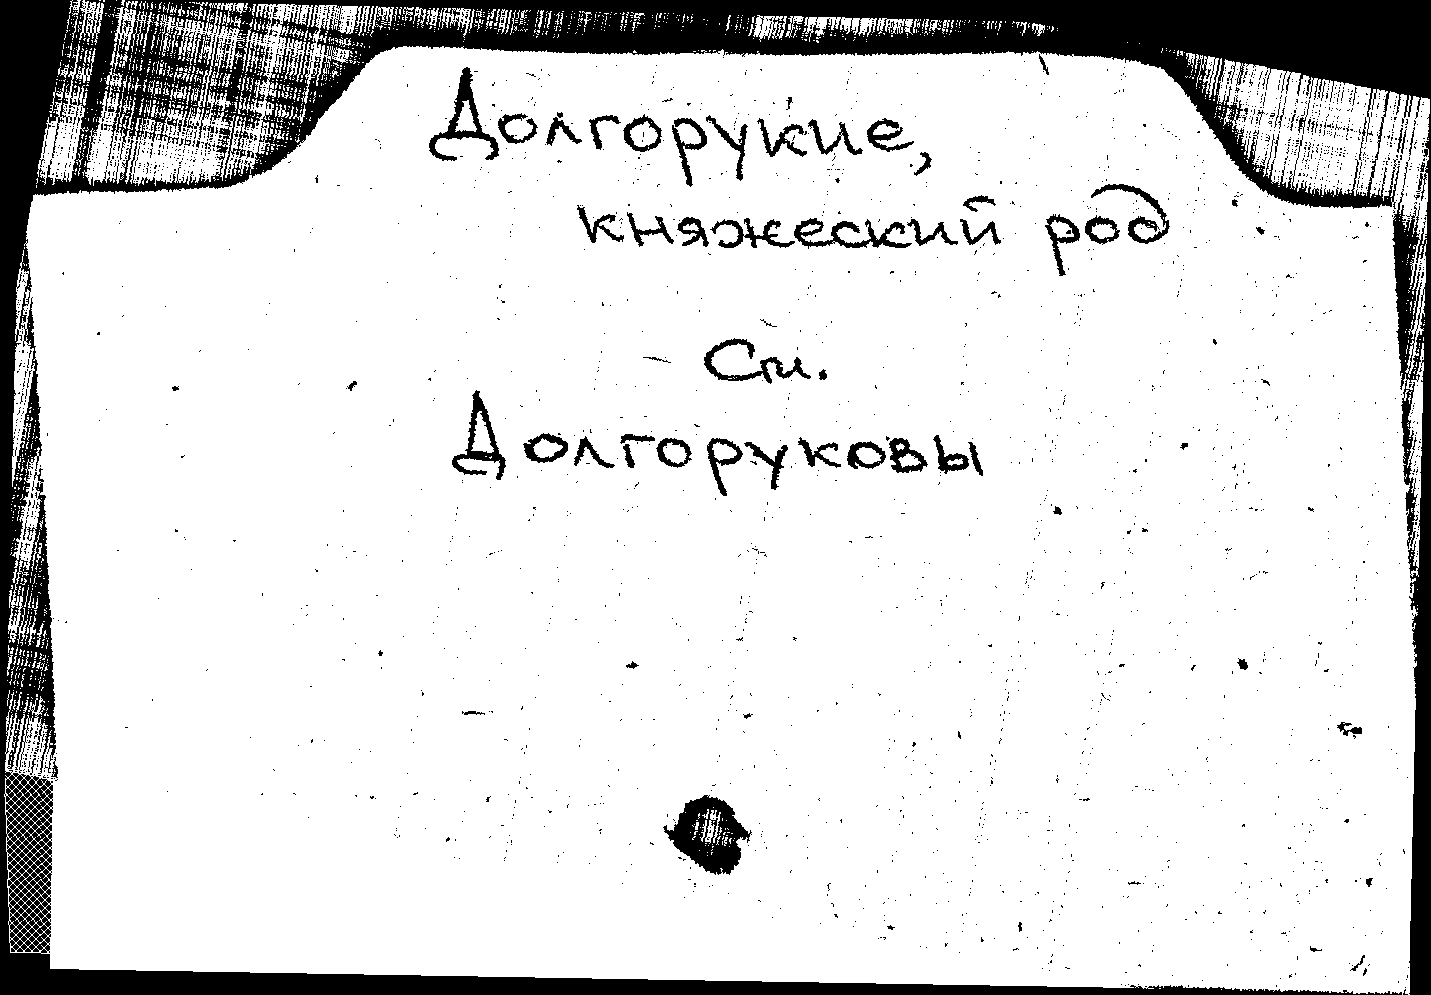 Долгорукие,
княжеский род
См.
Долгоруковы